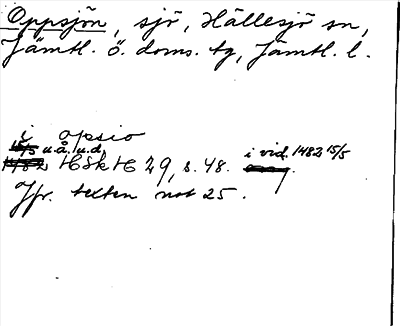 Oppsjön, sjö, Hällesjö sn,
Jämtl. ö. doms. tg, Jämtl. l.
i opsio
u.å. u.d.
HSkH 29, s. 48. i vid. 1482 15/5
Jfr. texten not 25.